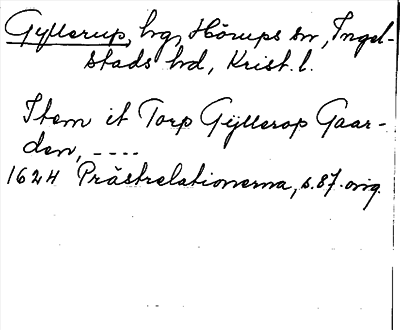 Gyllerup, hvg, Hörups sn, Ingel-
stads hd, Krist. l.
Item it Torp Gÿllerop Gaar-
den, ----
1624 Prästrelationerna, s. 87. orig.